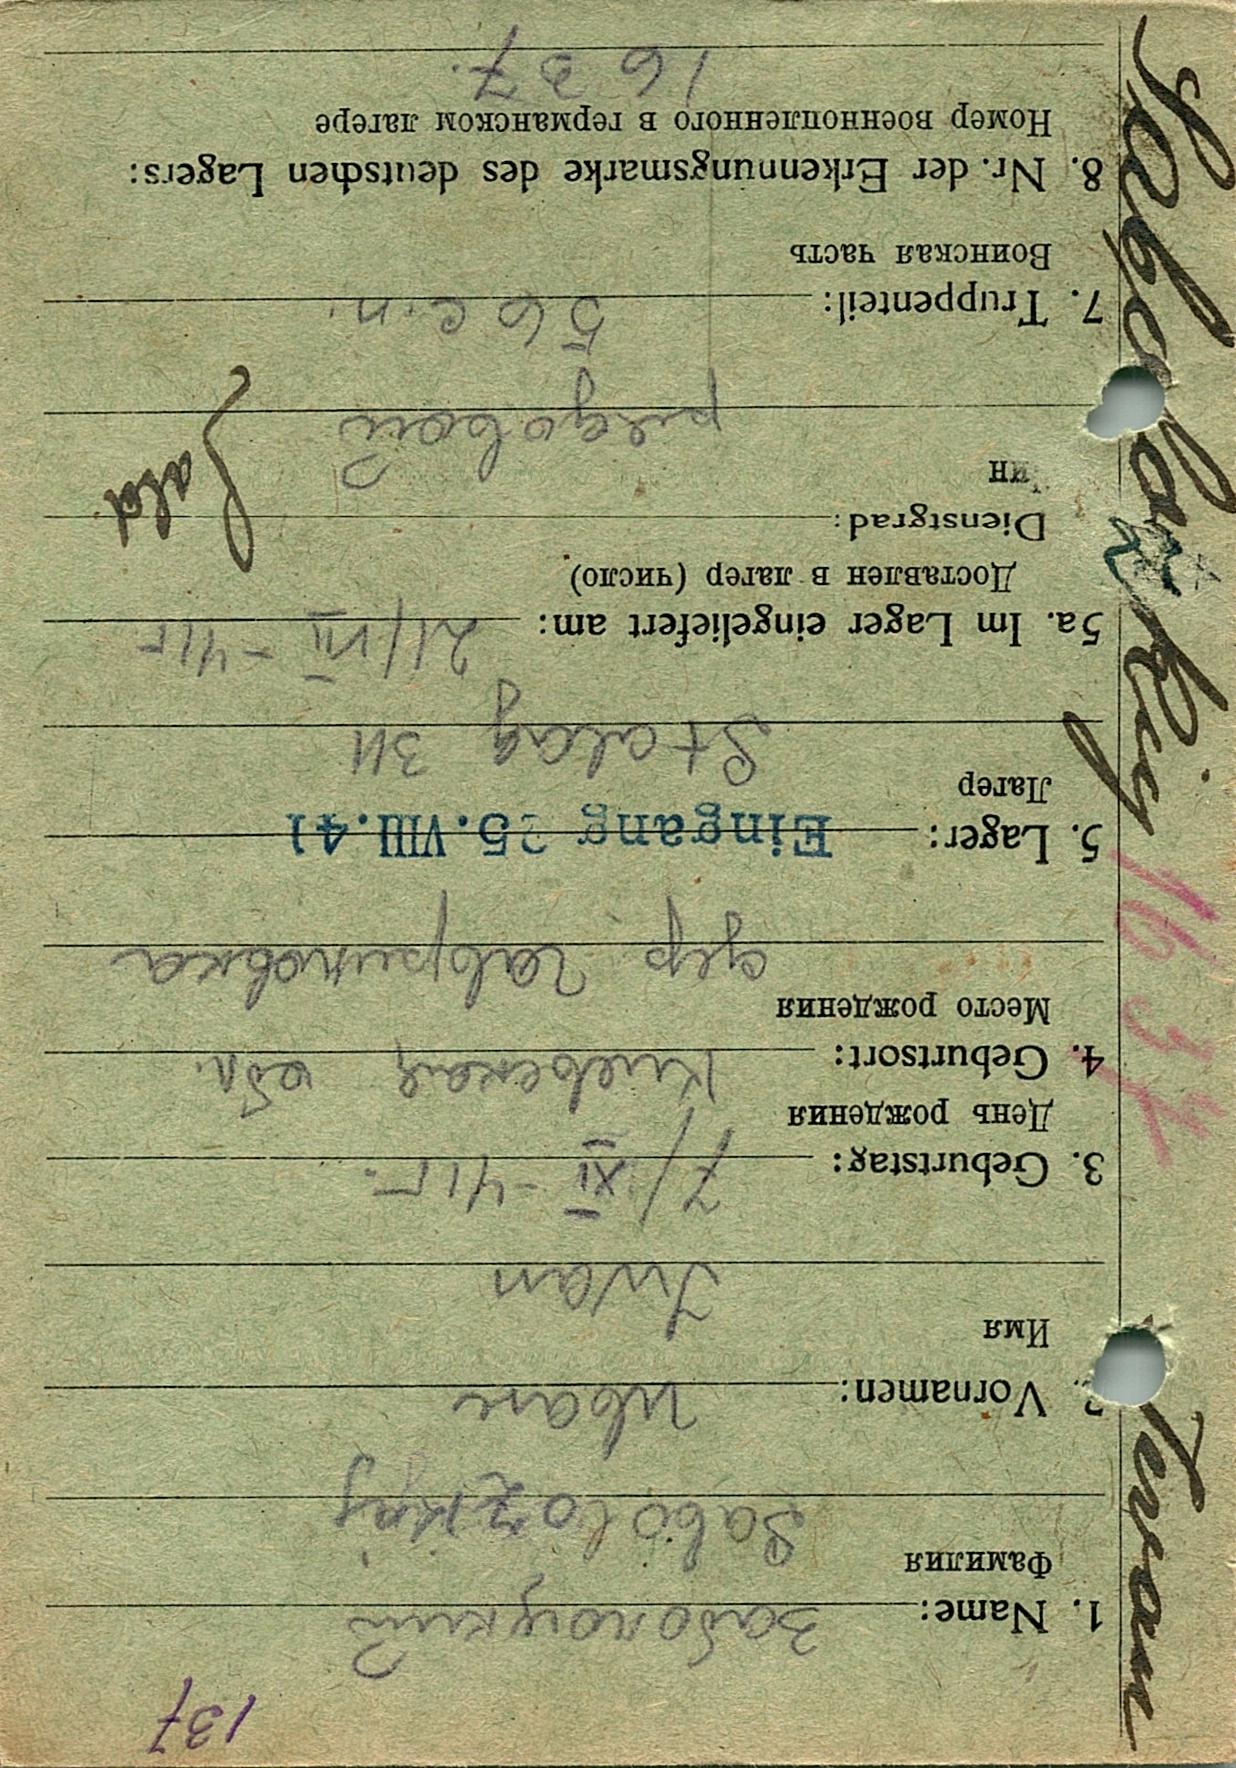 137
1. Name: Заболоцкий
Фамилия
Sabolozkij
2. Vornamen: Иван
Имя
Iwan
3. Geburtstag: 7/XI - 41 г.
День рождения
4. Geburtsort: Киевская обл.
Место рождения
дер Гавриловка
5. Lager: Eingang 25.VIII.41
Лагер
Stalag
5a. Im Lager eingeliefert am: 21/VII - 41 г
Доставлен в лагер (число)
Dienstgrad:
Чин
рядовой
Sold.
7. Truppenteil: 56 с.п.
Воинская часть
8. Nr. der Erkennungsmarke des deutschen Lagers:
Номер военнопленного в германском лагере
1637.
Sabolozkij 1637 Iwan